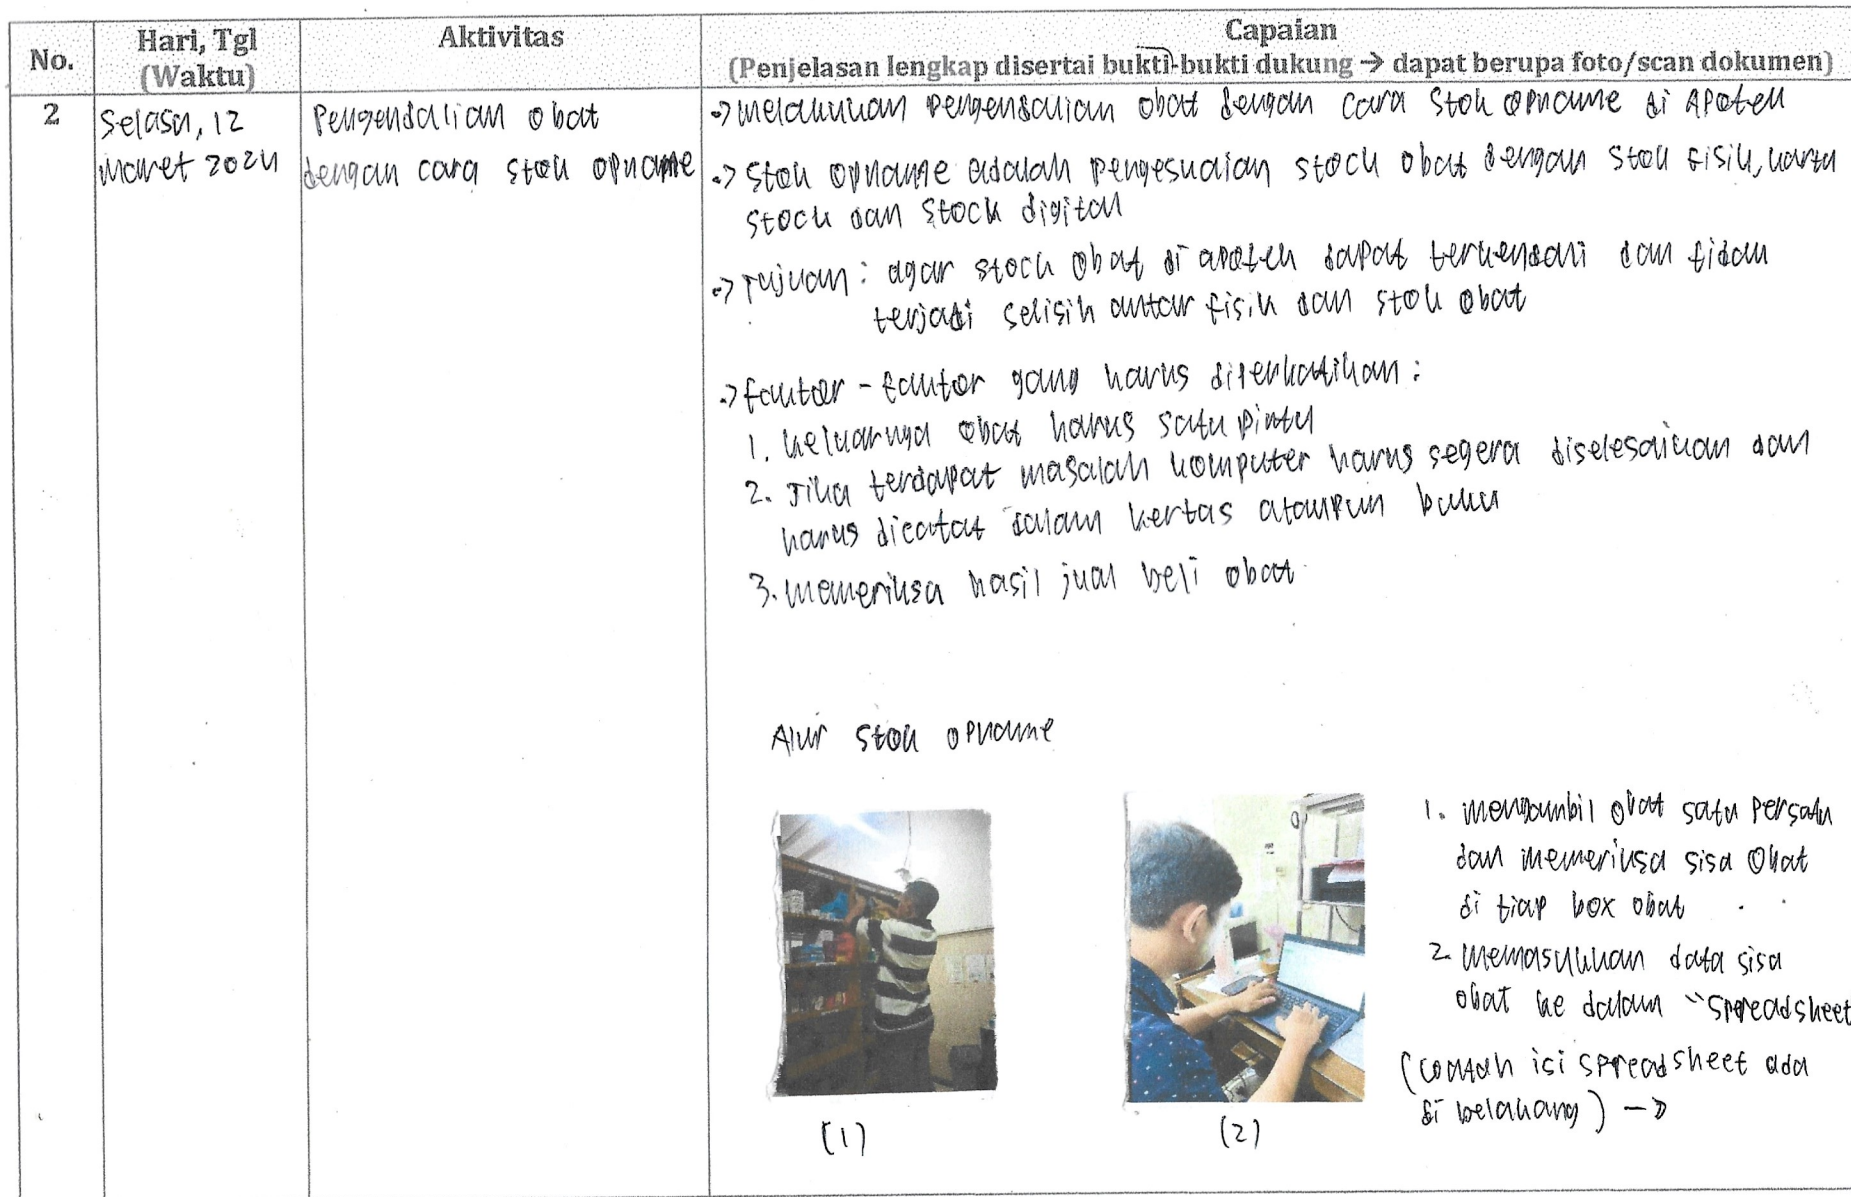 No.
Hari, Tgl
(Waktu)
Aktivitas
Capaian
(Penjelasan lengkap disertai bukti-bukti dukung → dapat berupa foto/scan dokumen)
2
Selasa, 12
Maret 2024
Pengendalian obat
dengan cara stok opname
-> melakukan pengendalian obat dengan cara stok opname di Apotek
-> Stok opname adalah pengesuaian stock obat dengan stok fisik, kartu
stock dan stock digital
-> Tujuan : agar stock obat di apotek dapat terkendali dan tidak
terjadi selisih antar fisik dan stok obat
-> faktor - faktor yang harus diperhatikan :
1. keluarnya obat harus satu pintu
2. Jika terdapat masalah komputer harus segera diselesaikan dan
harus dicatat dalam kertas ataupun buku
3. memeriksa hasil jual beli obat
Alur stok opname
1. mengambil obat satu persatu
dan memeriksa sisa obat
di tiap box obat
2. memasukkan data sisa
obat ke dalam "spreadsheet
(contoh isi spreadsheet ada
di belakang) ->
(1)
(2)